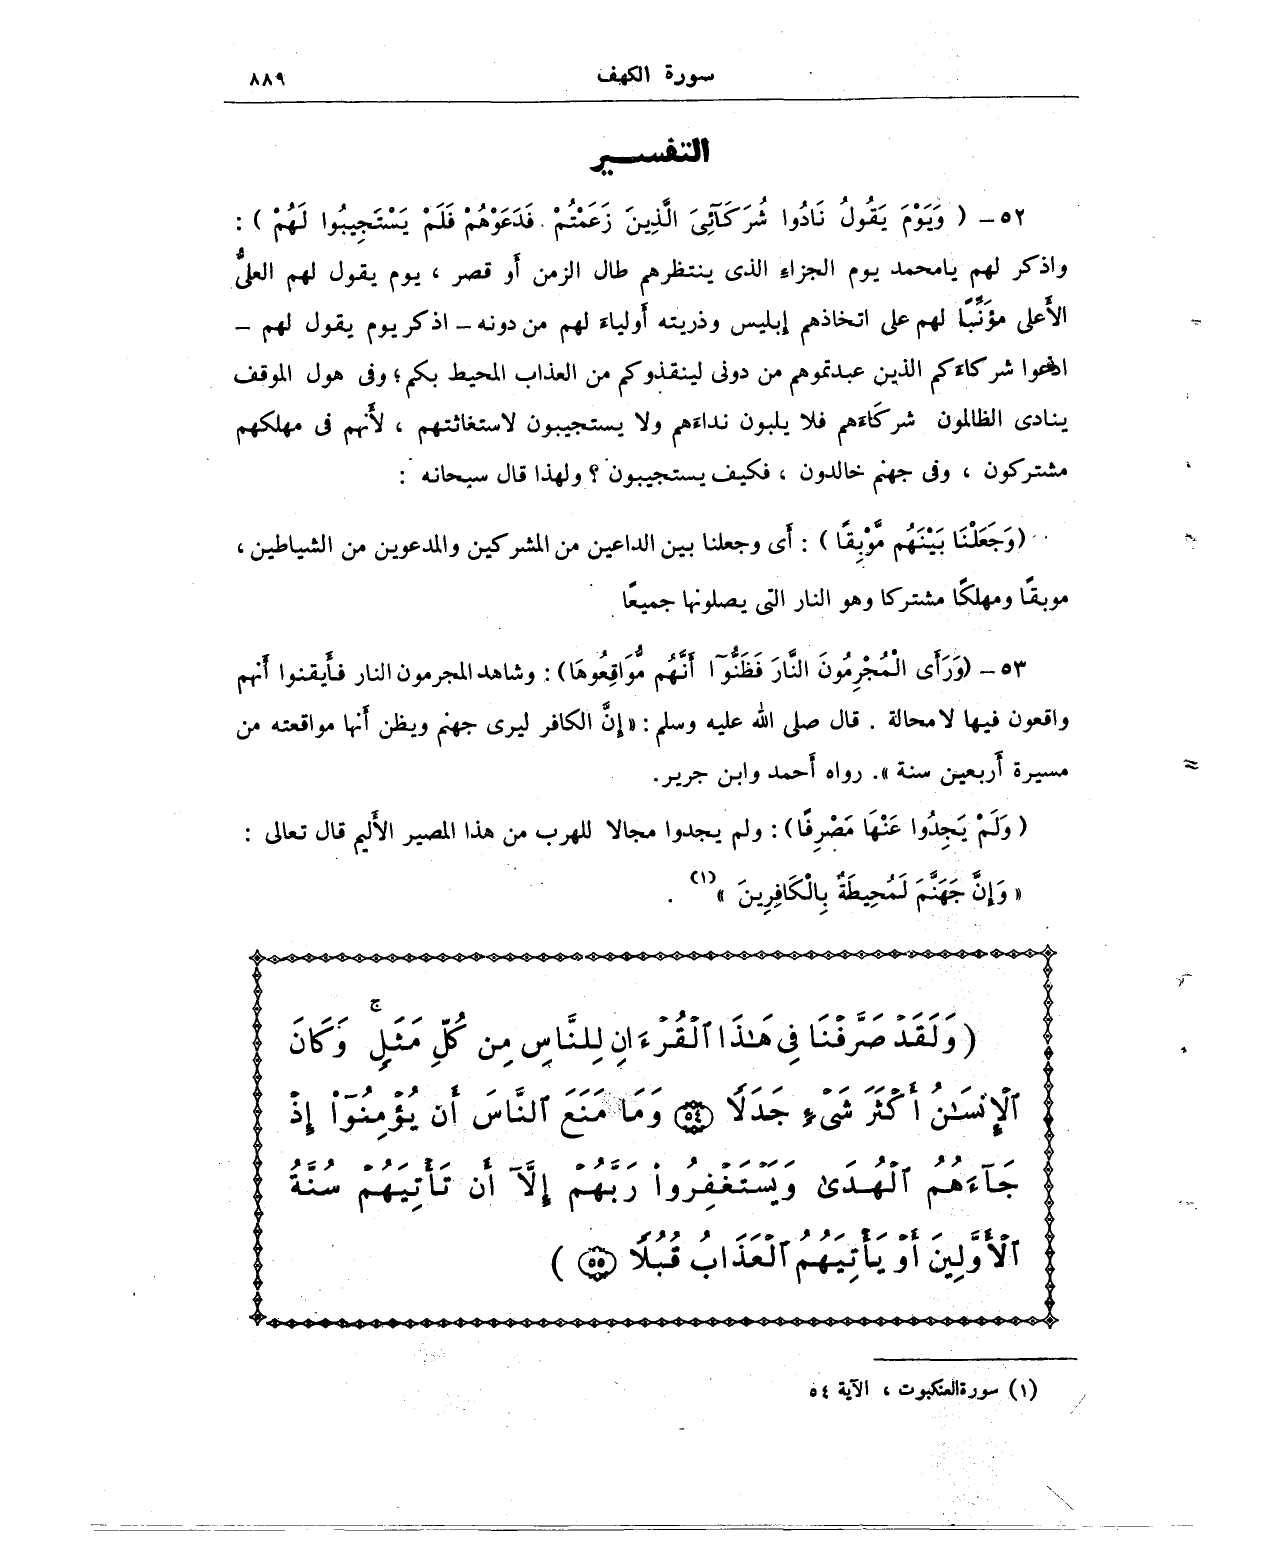 سورة الكهف ٨٨٩
التفسير
٥٢ – ( وَيَوْمَ يَقُولُ نَادُوا شُرَكَآئِيَ الَّذِينَ زَعَمْتُمْ . فَدَعَوْهُمْ فَلَمْ يَسْتَجِيبُوا لَهُمْ ) :
واذكر لهم يامحمد يوم الجزاء الذى ينتظرهم طال الزمن أو قصر ، يوم يقول لهم العلىُّ
الأَعلى مؤَنِّبًا لهم على اتخاذهم إبليس وذريته أولياءَ لهم من دونه – اذكر يوم يقول لهم –
ادعوا شركاءَكم الذين عبدتموهم من دونى لينقذوكم من العذاب المحيط بكم ؛ وفى هول الموقف
ينادى الظالمون شركَاءَهم فلا يلبون نداءَهم ولا يستجيبون لاستغاثتهم ، لأَنهم فى مهلكهم
مشتركون ، وفى جهنم خالدون ، فكيف يستجيبون ؟ ولهذا قال سبحانه :
(وَجَعَلْنَا بَيْنَهُم مَّوْبِقًا ) : أَى وجعلنا بين الداعين من المشركين والمدعوين من الشياطين ،
موبقًا ومهلكًا مشتركا وهو النار التى يصلونها جميعًا
٥٣ – (وَرَأَى الْمُجْرِمُونَ النَّارَ فَظَنُّوٓا أَنَّهُم مُّوَاقِعُوهَا) : وشاهد المجرمون النار فأَيقنوا أَنهم
واقعون فيها لا محالة . قال صلى الله عليه وسلم : «إنَّ الكافر ليرى جهنم ويظن أَنها مواقعته من
مسيرة أَربعين سنة ». رواه أَحمد وابن جرير.
( وَلَمْ يَجِدُوا عَنْهَا مَصْرِفًا) : ولم يجدوا مجالا للهرب من هذا المصير الأَليم قال تعالى :
« وَإِنَّ جَهَنَّمَ لَمُحِيطَةٌ بِالْكَافِرِينَ »(١) .
(وَلَقَدْ صَرَّفْنَا فِى هَـٰذَا ٱلْقُرْءَانِ لِلنَّاسِ مِن كُلِّ مَثَلٍ ۚ وَكَانَ
ٱلْإِنسَـٰنُ أَكْثَرَ شَىْءٍ جَدَلًا ﴿٥٤﴾ وَمَا مَنَعَ ٱلنَّاسَ أَن يُؤْمِنُوٓا۟ إِذْ
جَآءَهُمُ ٱلْهُدَىٰ وَيَسْتَغْفِرُوا۟ رَبَّهُمْ إِلَّآ أَن تَأْتِيَهُمْ سُنَّةُ
ٱلْأَوَّلِينَ أَوْ يَأْتِيَهُمُ ٱلْعَذَابُ قُبُلًا ﴿٥٥﴾ )
(١) سورة العنكبوت ، الآية ٥٤